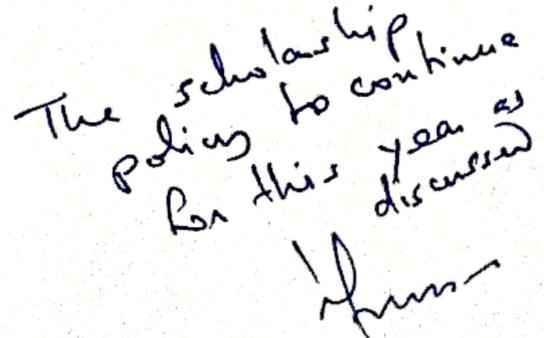 The scholarship
policy to continue
for this year as
discussed